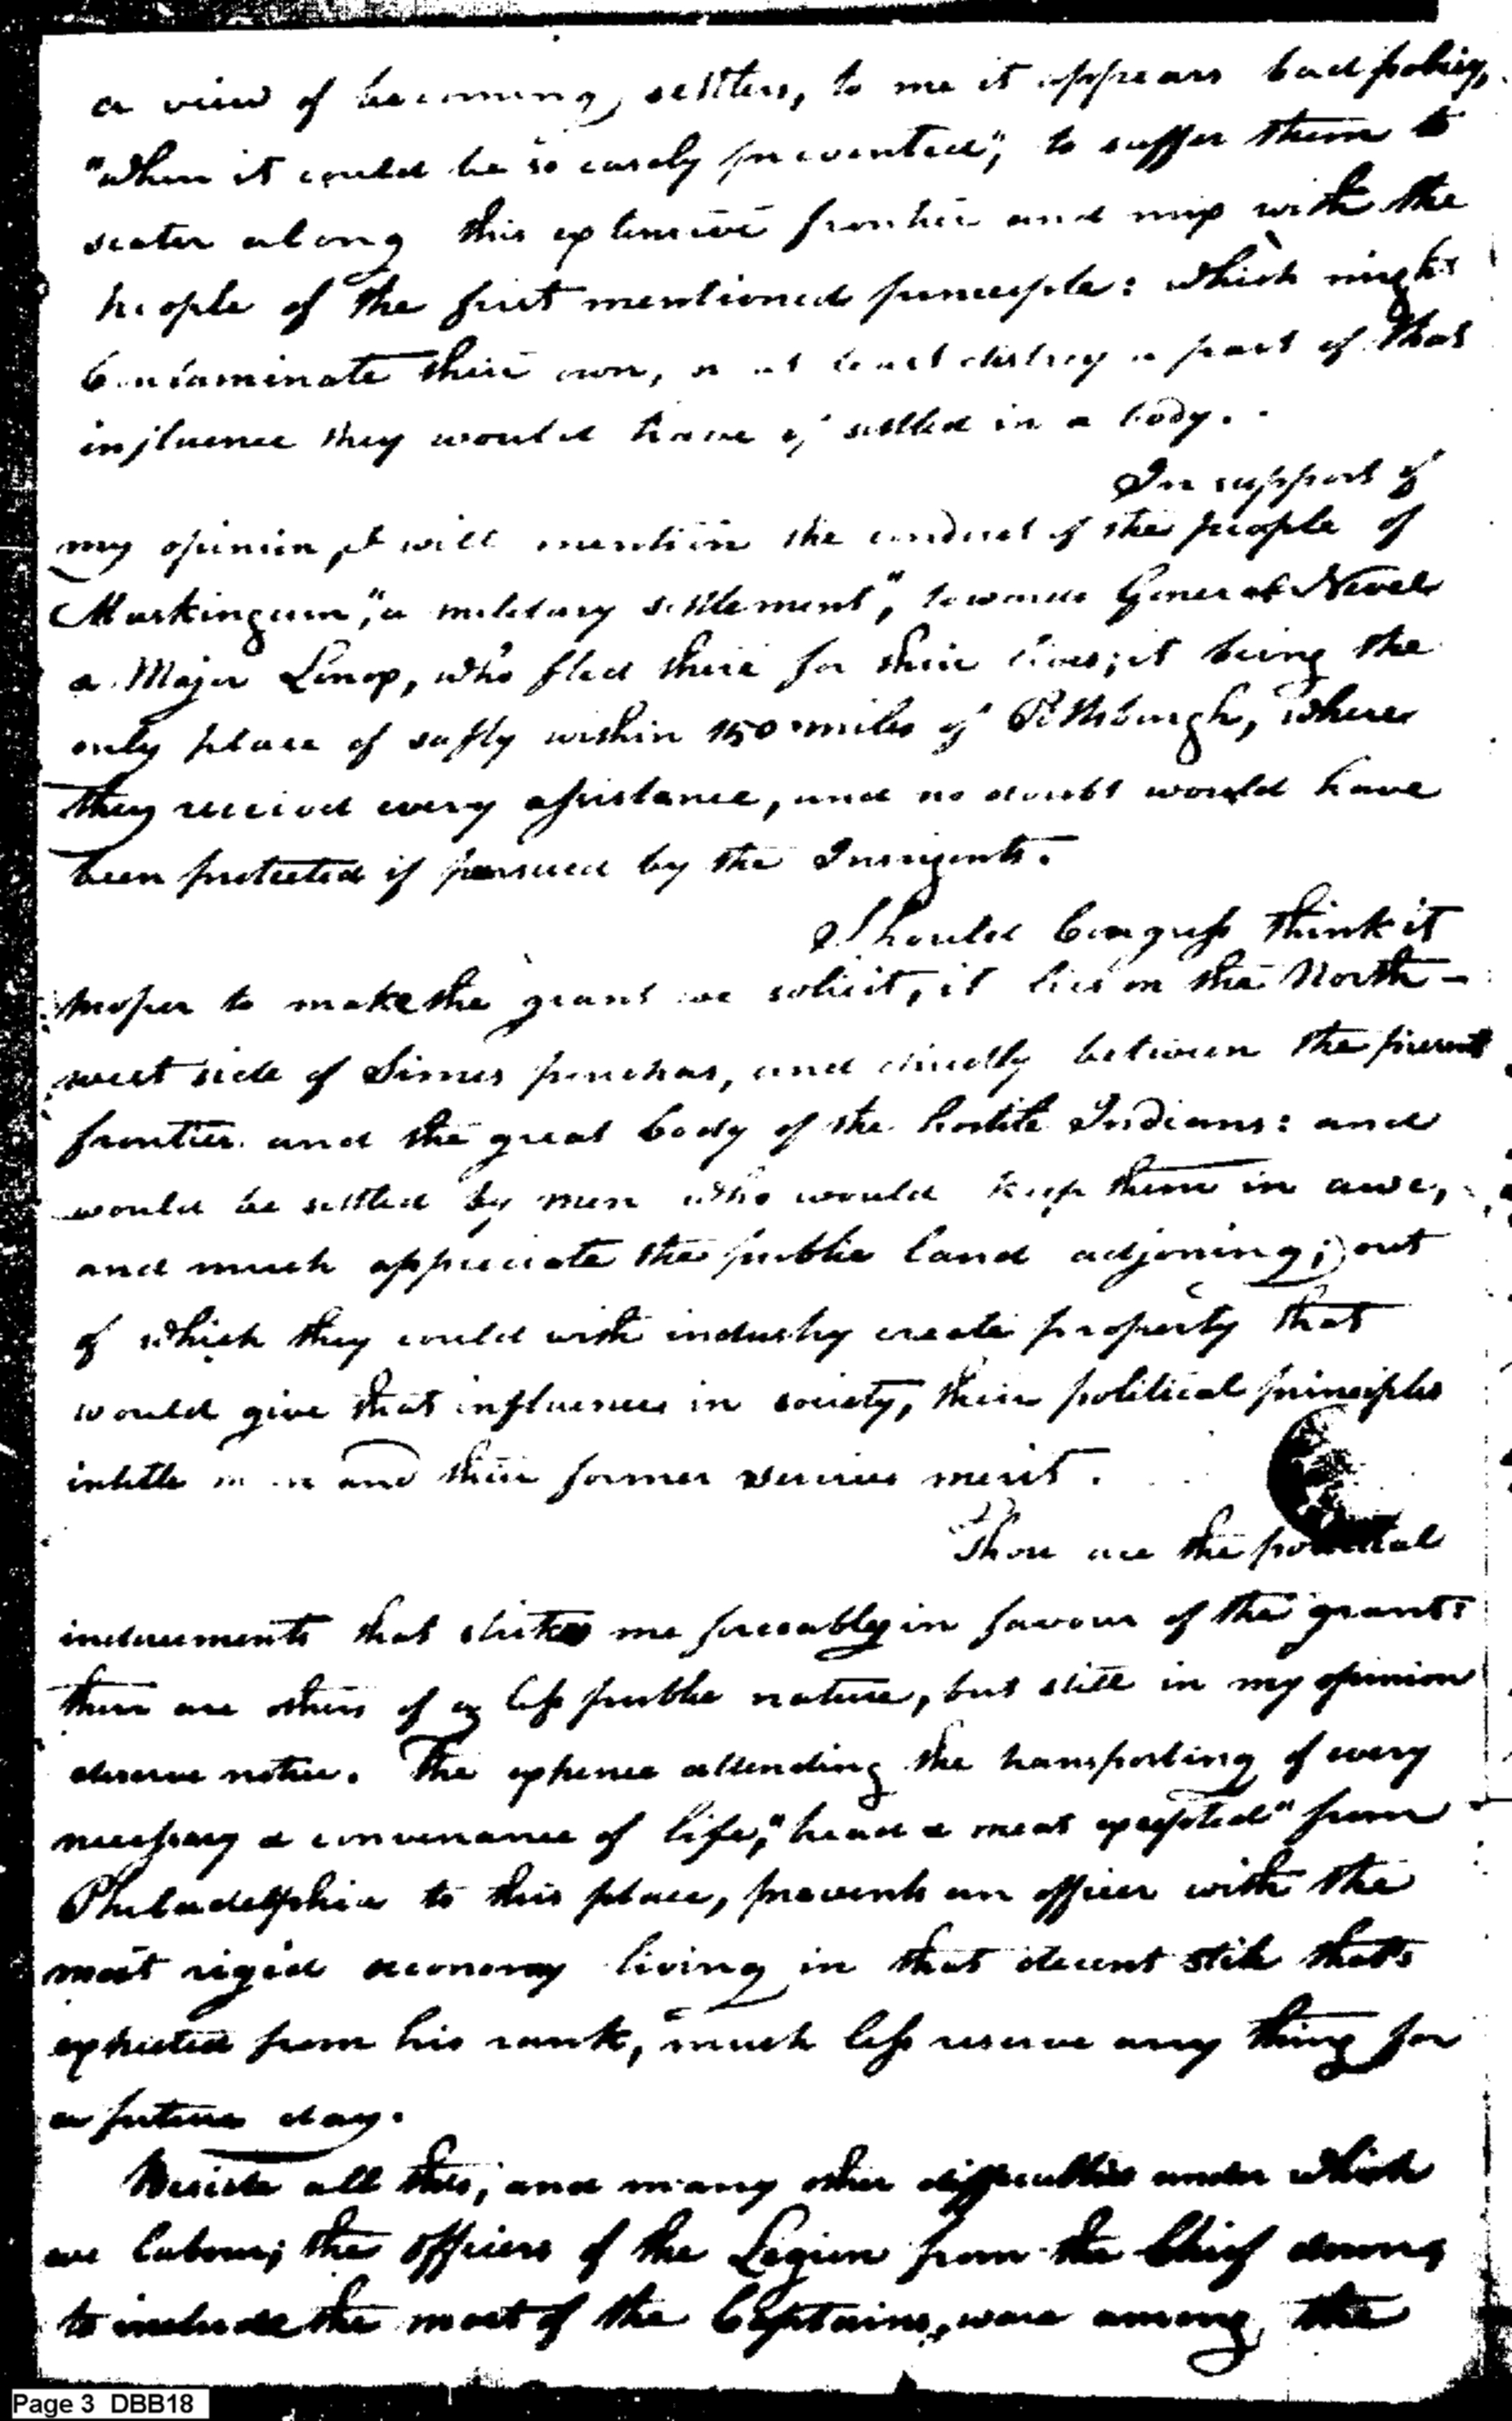 a view of becoming settlers, to me it appears bad policy,
"when it could be so easely prevented", to suffer them to
scater along this extensive frontier and mix with the
people of the first mentioned principle: which might
Contaminate their own, or at least distroy a part of that
influence they would have if settled in a body.
In support of
my opinion, I will mention the conduct of the people of
Muskingum, "a military settlement", towards General Nevel
a Major Lenox, who fled there for their lives; it being the
only place of safty within 150 miles of Pittsburgh, where
they receivd every assistance, and no doubt would have
been protected if persued by the Insurgents.
Should Congress think it
proper to make the grant we solicit, it lies on the North-
west side of Simes purchas, and chiefly between the present
frontier and the great body of the hostile Indians: and
would be settled by men who would keep them in awe,
and much appreciate the public land adjoning; out
of which they could with industry create property that
would give that influence in society, their political principles
intitle and their former services merit.
Those are the political
inducements that strikes me forceably in favour of the grant:
there are others of a less public nature, but still in my opinion
deserve notice. The expence attending the transporting of every
necessary & convenance of life, "bread & meat excepted" from
Philadelphia to this place, prevents an officer with the
most rigid economy living in that decent stile thats
expected from his rank, much less reserve any thing for
a future day.
Beside all this, and many other difficulties under which
we labour; the officers of the Legion from the Chief down
to include the most of the Captains, ware among the
Page 3 DBB18